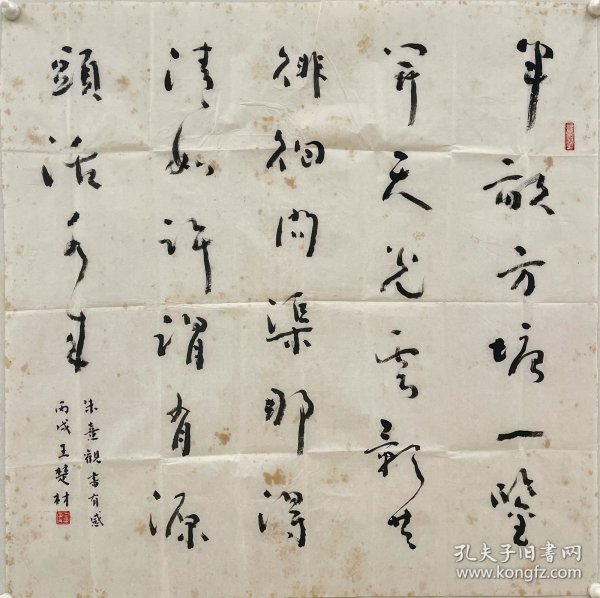 半畝方塘一鑒
開天光雲影共
徘徊問渠那得
清如許謂有源
頭活水來
朱熹觀書有感
丙戌王楚材
孔夫子旧书网
www.kongfz.com